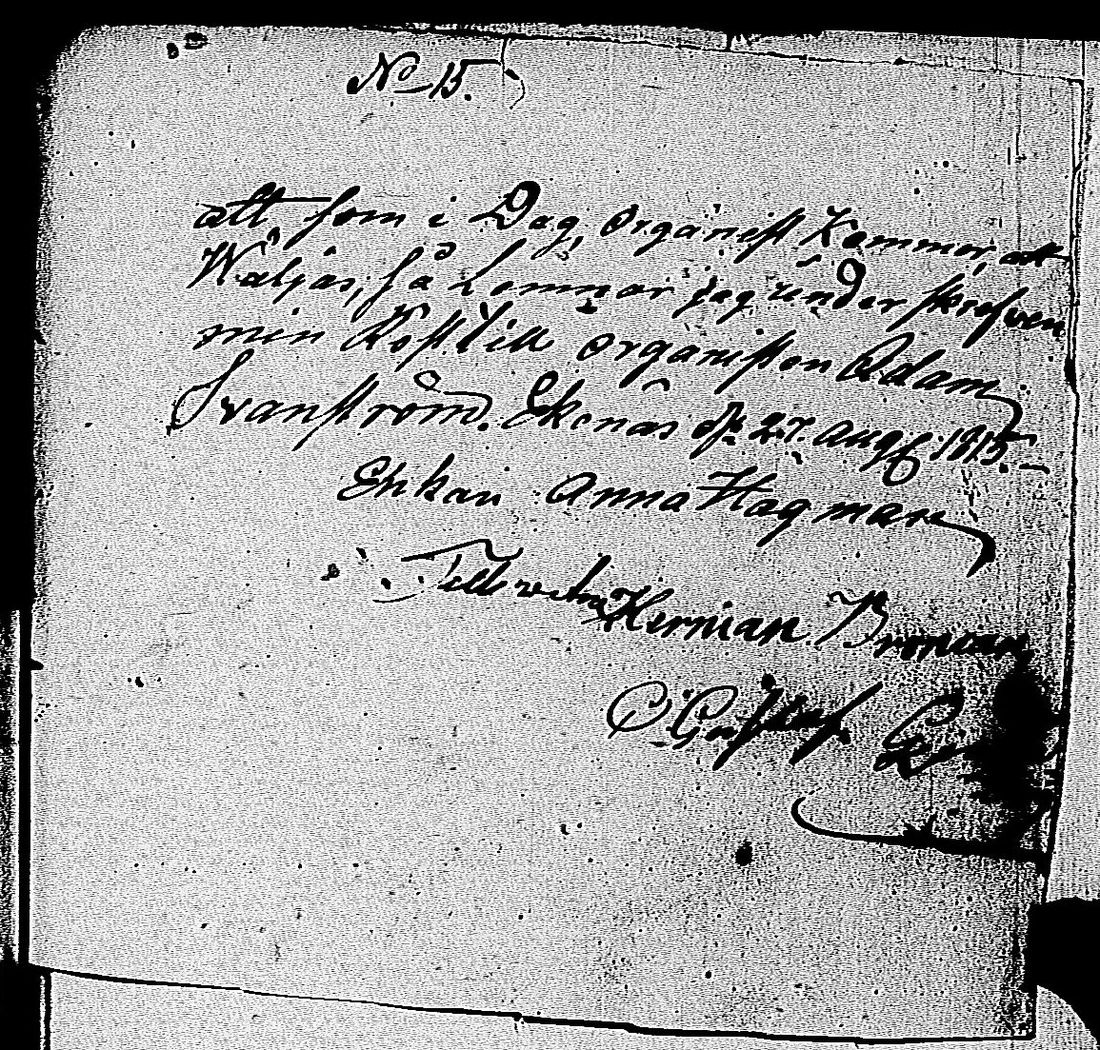 No 15.
att som i Dag organist Kommer, att
Wäljas, så Lemnar jag under skrefven
min Röst till organisten Adam
Svanström. Ekenäs d. 27. aug 1815.
Enkan Anna Hagman
Herman Broman
C Gustaf